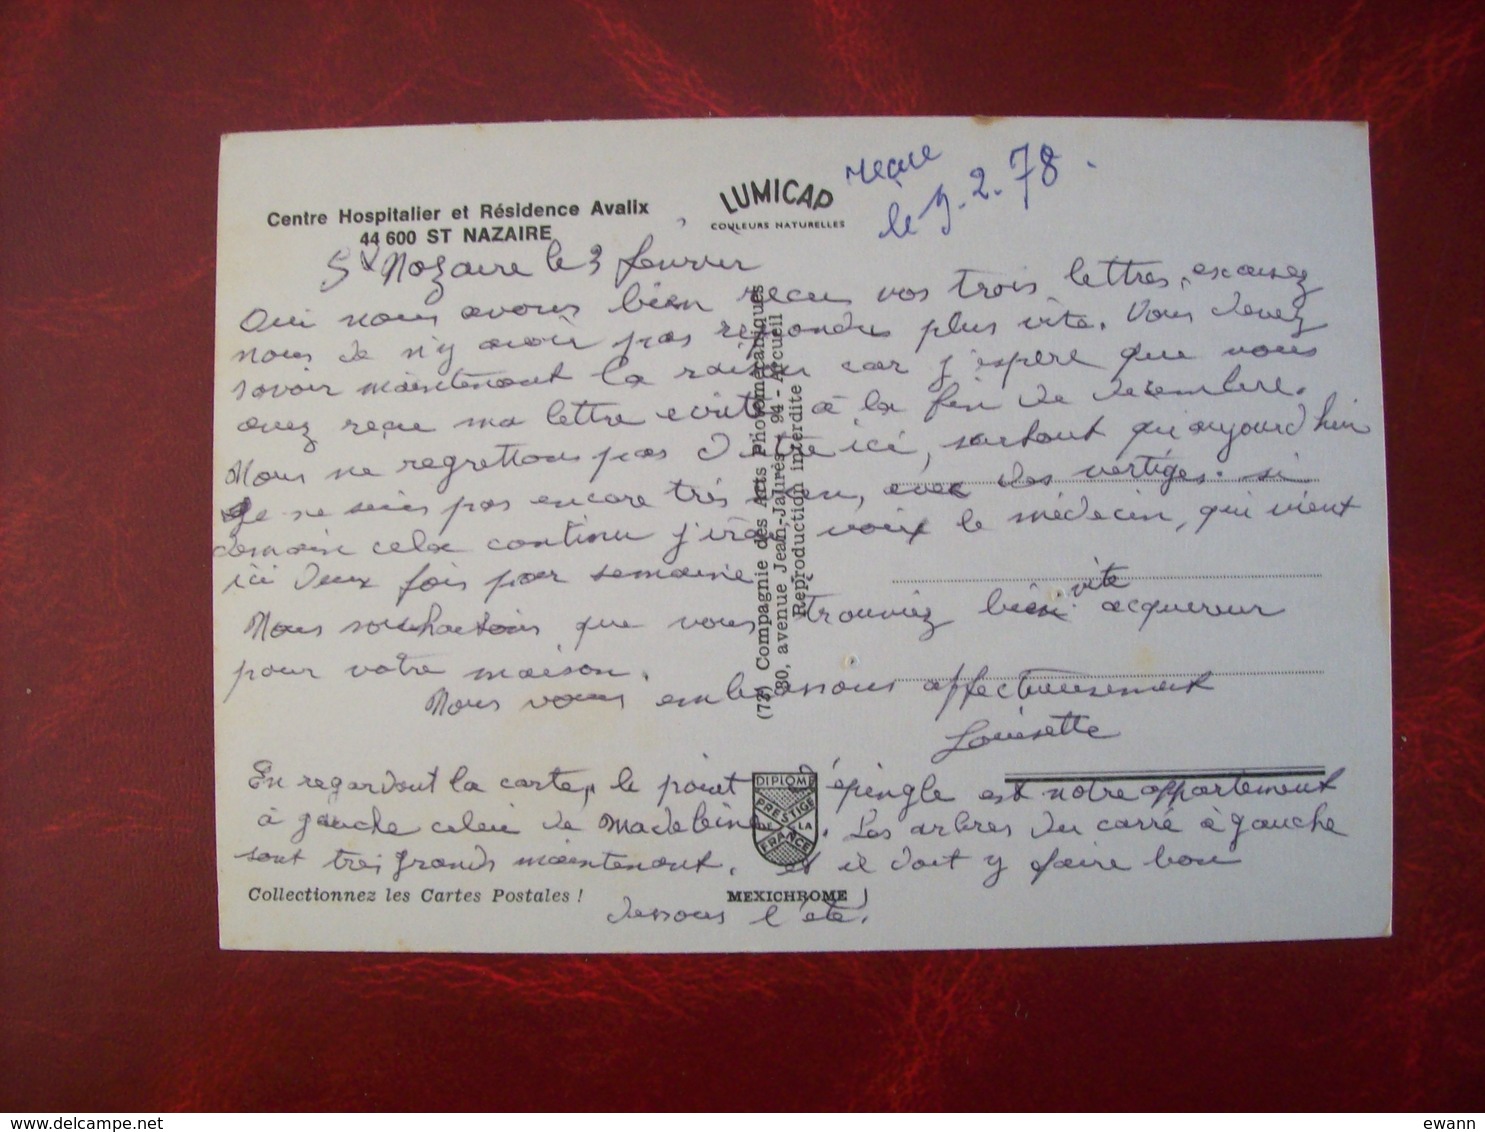 Centre Hospitalier et Résidence Avalix
44 600 ST NAZAIRE
LUMICAP
COULEURS NATURELLES
reçue
le 9.2.78.
St Nazaire le 3 fevrier
Oui nous avons bien recu vos trois lettres, excusez
nous de n'y avoir pas repondu plus vite. Vous devez
savoir maintenant la raison car j'espère que vous
avez reçu ma lettre ecrite à la fin de decembre.
Nous ne regrettons pas d'etre ici, surtout qu'aujourd'hui
Je ne suis pas encore très bien, avec des vertiges. si
demain cela continu j'irai voir le médecin, qui vient
ici deux fois par semaine
Nous souhaitons que vous trouviez bien vite acquereur
pour votre maison.
Nous vous embrassons affectueusement
Louisette
En regardant la carte, le point d'épingle est notre appartement
à gauche celui de Madeleine. Les arbres du carré à gauche
sont très grands maintenant. et il doit y faire bon
dessous l'été.
(73) Compagnie des Arts Photomécaniques
80, avenue Jean-Jaurès, 94 - Arcueil
Reproduction interdite
DIPLOME
PRESTIGE
DE LA
FRANCE
Collectionnez les Cartes Postales !
MEXICHROME
delcampe.net
ewann